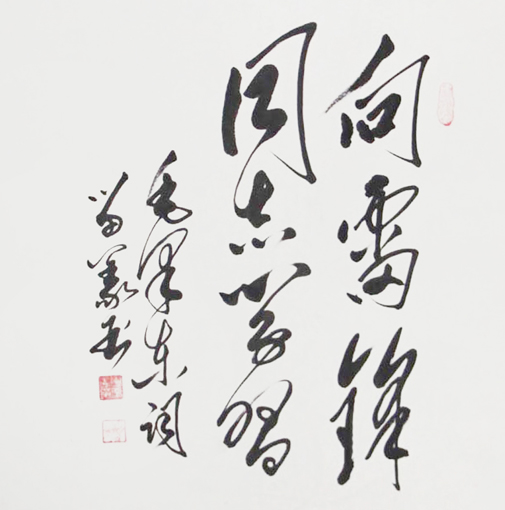 向雷锋
同志学习
毛泽东词